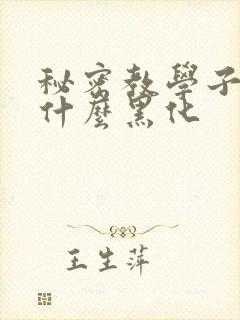 秘密教學子
什麼黑化
王生萍